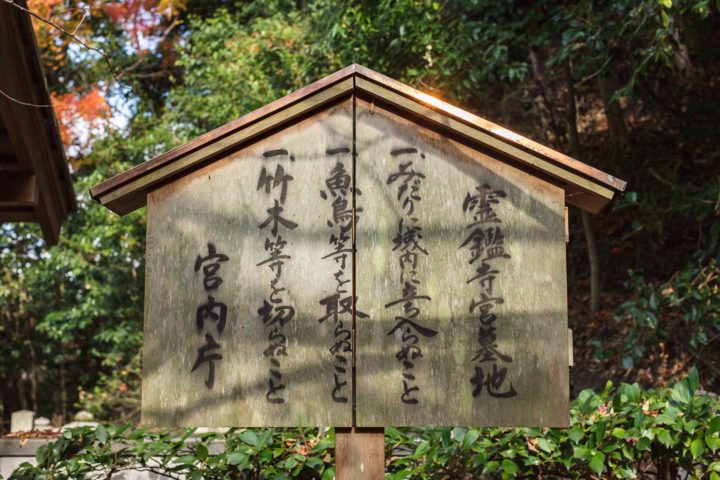 霊鑑寺宮墓地
一、みだりに域内に立入らぬこと
一、魚鳥等を取らぬこと
一、竹木等を切らぬこと
宮内庁